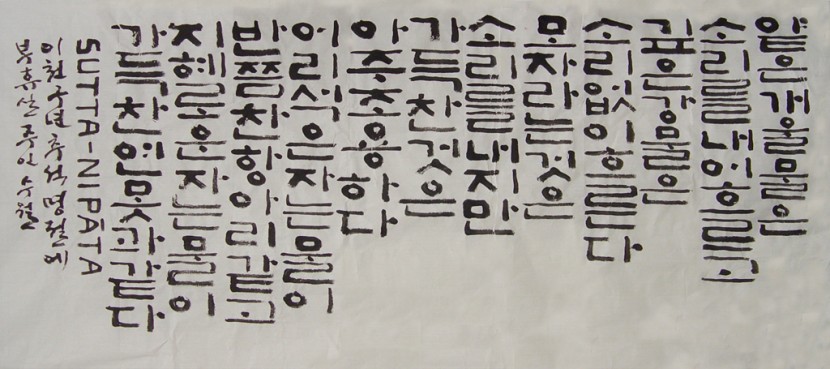 얕은개울물은
소리를내어흐르고
깊은강물은
소리없이흐른다
모자라는것은
소리를내지만
가득찬것은
아주조용하다
어리석은자는물이
반쯤찬항아리같고
지혜로운자는물이
가득찬연못과같다
SUTTA-NIPĀTA
이천구년 추석 명절에